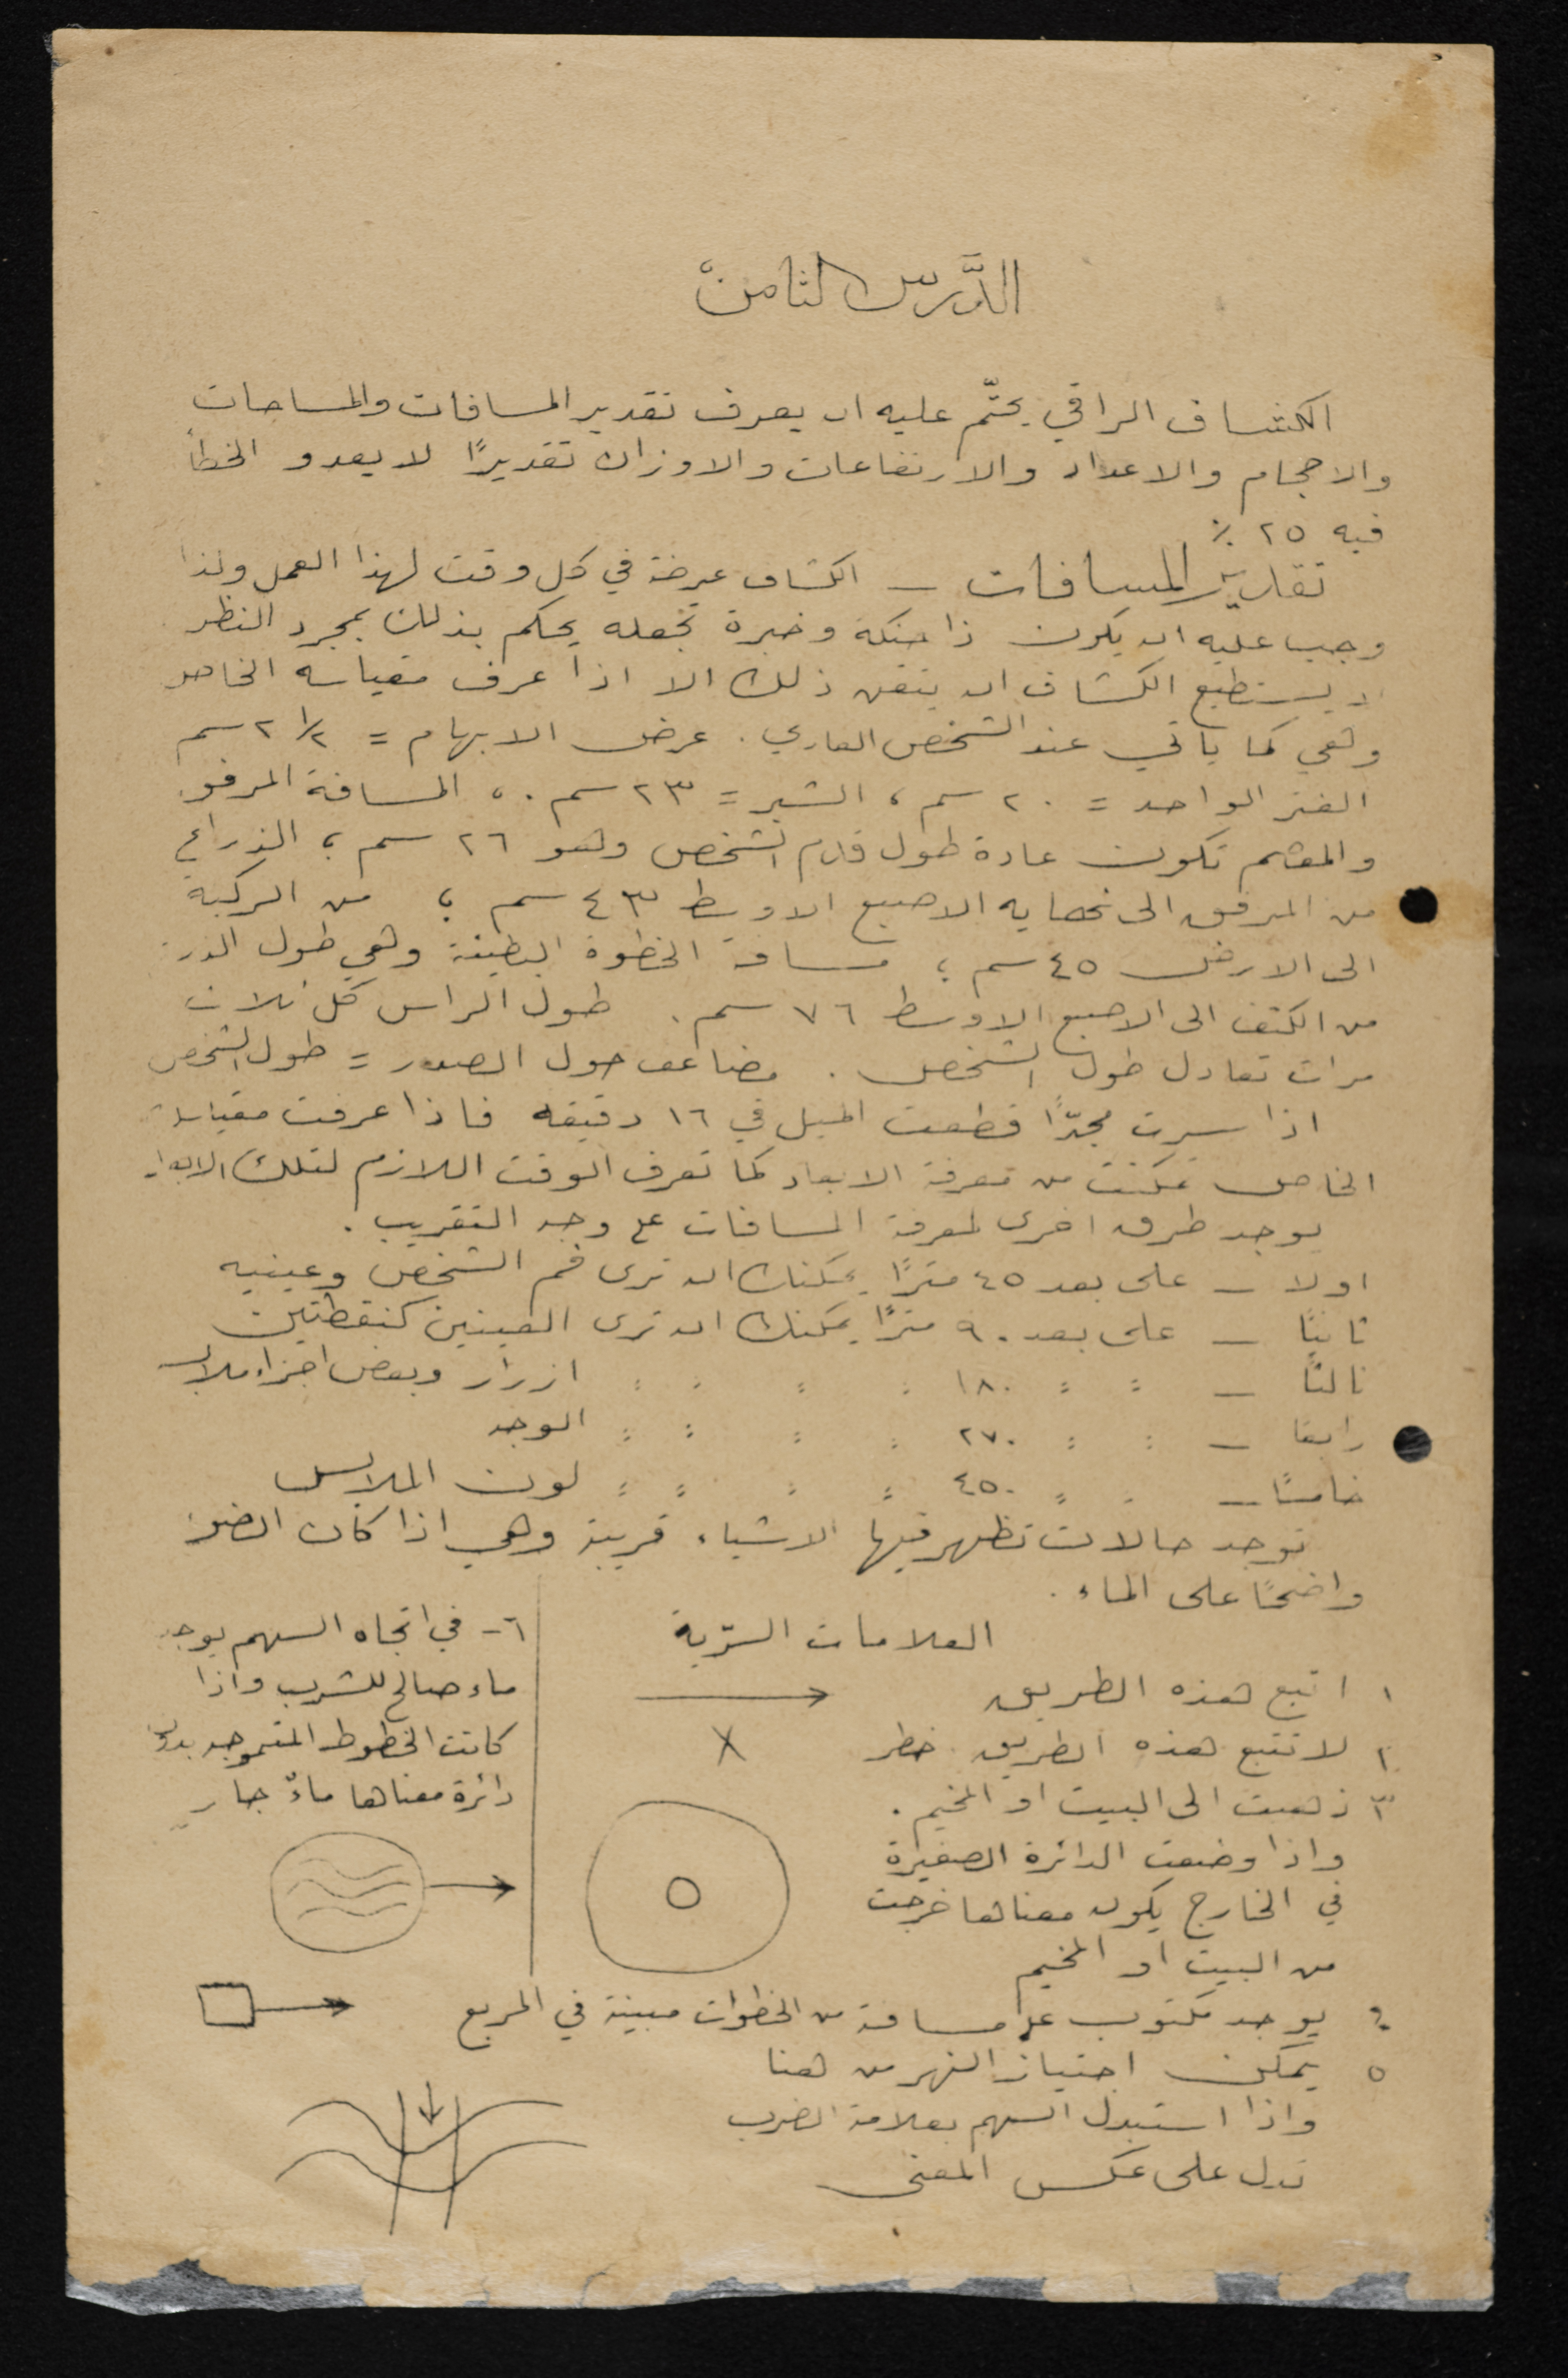 الدَّرس الثامنْ
الكشاف الراقي يحتّم عليه ان يعرف تقدير المسافات والمساحات
والاحجام والاعداد والارتفاعات والاوزان تقديرًا لا يعدو الخطأ
فيه ٢٥ ٪
تقدير المسافات – الكشاف عرضة في كل وقت لهذا العمل ولذا
وجب عليه ان يكون ذا حنكة وخبرة تجعله يحكم بذلك بمجرد النظر
لا يستطيع الكشاف ان يتقن ذلك الا اذا عرف مقياسه الخاص
وهي كما يأتي عند الشخص العادي . عرض الابهام = ٢ ١/٢ سم
الفتر الواحد = ٢٠ سم ، الشبر = ٢٣ سم . ، المسافة المرفق
والمعصم تكون عادة طول قدم الشخص وهو ٢٦ سم ؛ الذراع
من المرفق الى نهايه الاصبع الاوسط ٤٣ سم ؛ من الركبة
الى الارض ٤٥ سم ؛ مسافة الخطوة البطيئة وهي طول
من الكتف الى الاصبع الاوسط ٧٦ سم . طول الراس كل ثلاث
مرات تعادل طول الشخص . مضاعف حول الصدر = طول الشخص
اذا سرت مجدّاً قطعت الميل في ١٦ دقيقه فاذا عرفت مقياسك
الخاص تمكنت من معرفة الابعاد كما تعرف الوقت اللازم لتلك الابعاد
يوجد طرق اخرى لمعرفة المسافات على وجه التقريب .
اولا – على بعد ٤٥ مترًا يمكنك ان ترى فم الشخص وعينيه
ثانيًا – على بعد ٩٠ مترًا يمكنك ان ترى العينين كنقطتين
ثالثًا – : : ١٨٠ : : : : ازرار وبعض اجزاء ملابس
رابعًا – : : ٢٧٠ : : : : الوجه
خامسًا – : : ٤٥٠ : : : : لون الملابس
توجد حالات تظهر فيها الاشياء قريبة وهي اذا كان الضوء
واضحًا على الماء .
العلامات السّرية
١ اتبع هذه الطريق
٢ لا تتبع هذه الطريق خطر
٣ ذهبت الى البيت او المخيم .
واذا وضعت الدائرة الصغيرة
في الخارج يكون معناها خرجت
من البيت او المخيم
٤ يوجد مكتوب على مسافة من الخطوات مبينة في المربع
٥ يمكن اجتياز النهر من هنا
واذا استبدل السهم بعلامة الضرب
تدل على عكس المعنى
٦– في اتجاه السهم يوجد
ماء صالح للشرب واذا
كانت الخطوط المتموجه بدون
دائرة معناها ماءٌ جارٍ